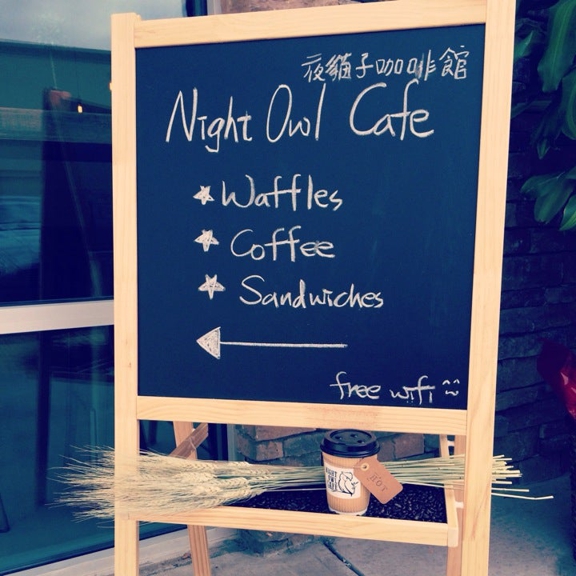 夜貓子咖啡館
Night Owl Cafe
Waffles
Coffee
Sandwiches
free wifi
HOT